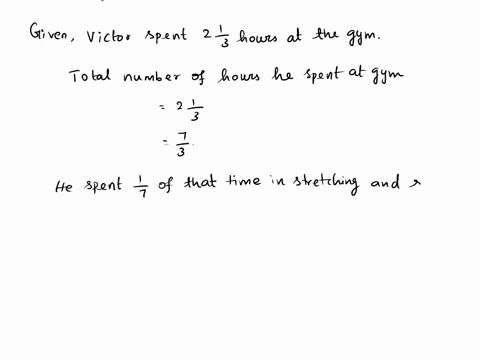 Given, Victor spent 2 1/3 hours at the gym.
Total number of hours he spent at gym
= 2 1/3
= 7/3.
He spent 1/7 of that time in stretching and